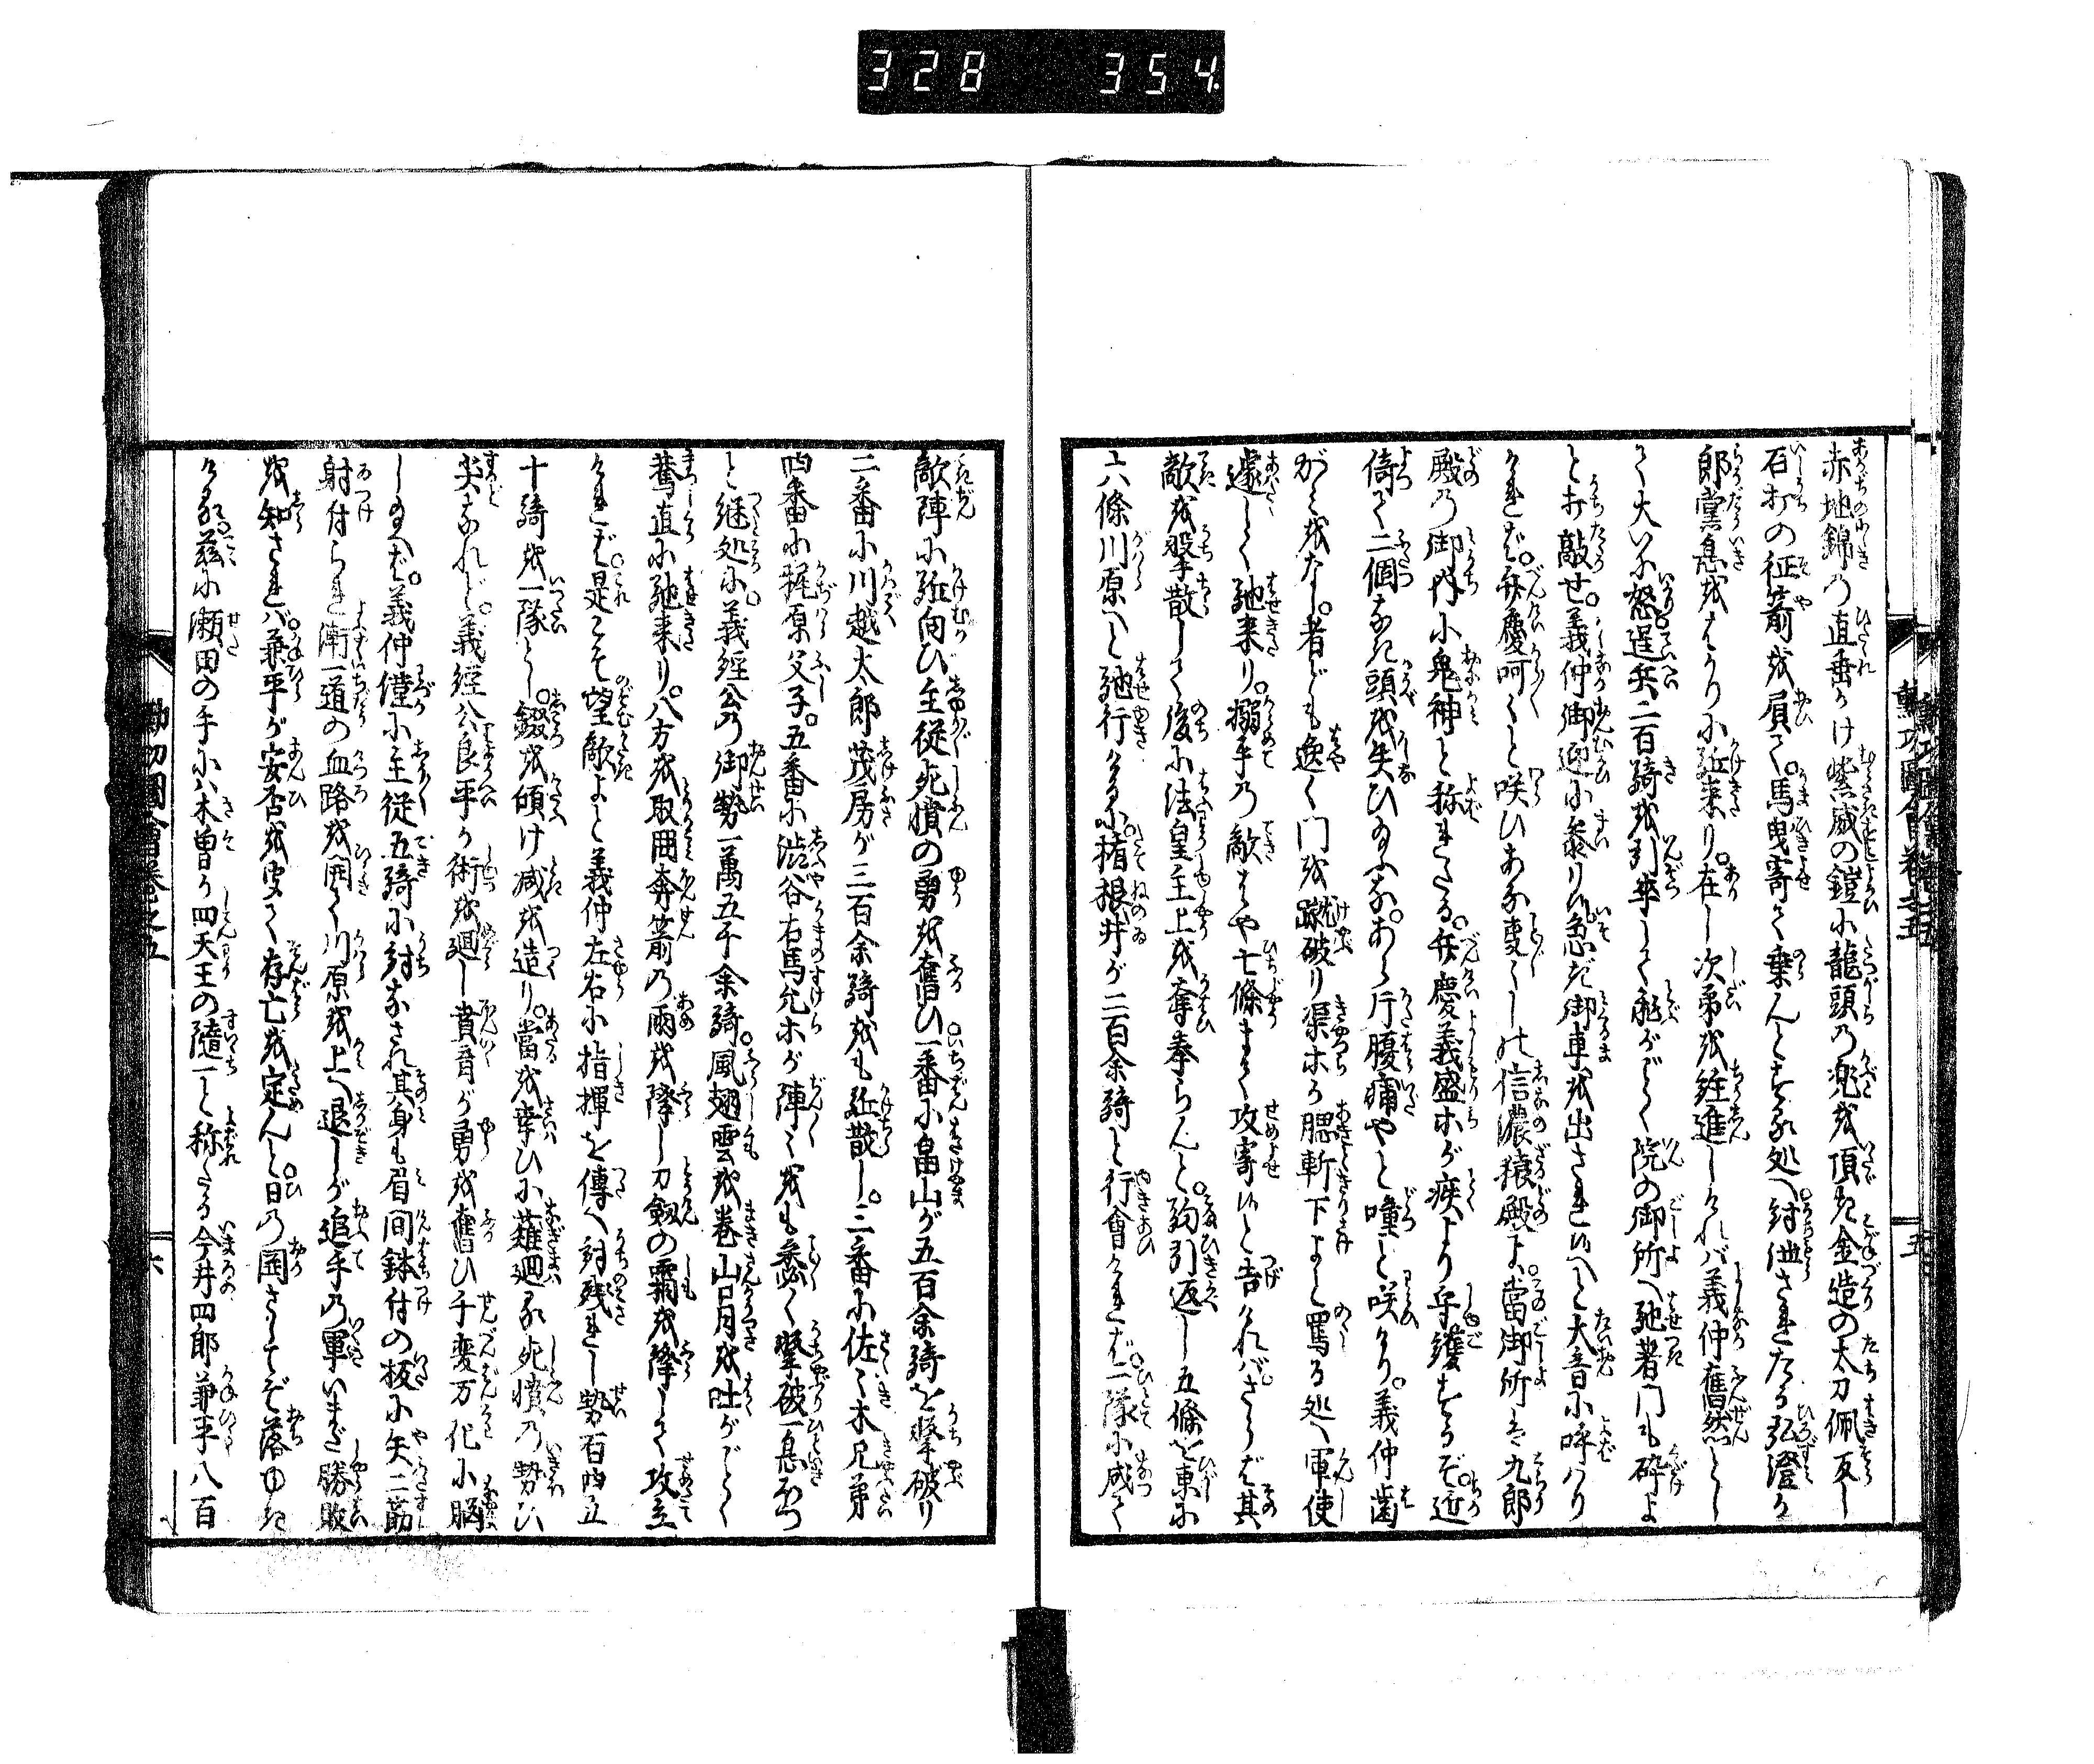 328 354
赤地錦の直垂にけ紫威の鎧に龍頭の兜を頂き金造の太刀佩反し
石打の征箭を屓て馬曳寄て乗んとする処へ討泄されたる弘澄が
郎黨息をはかりに近来り在し次㐧を註進しければ義仲奮然とし
て大いに怒逞兵二百騎を引率して飛がごとく院の御所へ馳着門も砕よ
と打敲せ義仲御迎に参り候急ぎ御車を出され候へと大音に呼はり
ければ弁慶呵々と咲ひあな変々し此信濃猿殿よ當御所は九郎
殿の御内に鬼神と称れたる弁慶義盛ホが疾より守護するぞ近
倚て二個なき頭を失ひ給ふなあら片腹痛やと噇と咲けり義仲歯
がみをなし者ども逸く门を蹴破り渠ホを腮斬下よと罵る処へ軍使
遽しく馳来り搦手の敵はや七條まで攻寄候と告ければさらば其
敵を撃散して後に法皇主上を奪奉らんと駒引返し五條を東に
六條川原へと馳行けるに楯根井が二百余騎と行會ければ一隊に成て
敵陣に近向ひ主従死憤の勇を奮ひ一番に畠山が五百余騎を撃破り
二番に川越太郎茂房が三百余騎をも近散し三番に佐々木兄弟
四番に梶原父子五番に渋谷右馬允ホが陣々をも悉く撃破一息ほつ
と継処に義經公の御勢一萬五千余騎風翅雲を巻山日月を吐がごとく
驀直に馳来り八方を取囲奔箭の雨を降し刀劔の霜を降して攻立
ければ是こそ望敵よと義仲左右に指揮を傳へ討残れし勢百四五
十騎を一隊とし錣を傾け減を造り當を幸ひに薙廻る死憤の勢ひ
尖なれど義經公良平が術を廻し賁育が勇を奮ひ千変万化に脳
し給へば義仲僅に主従五騎に討なされ其身も眉間鉢付の板に矢二筋
射付られ漸一道の血路を開て川原を上へ退しが追手の軍いまだ勝敗
を知されバ兼平が安否を聞て存亡を定んと日の岡さしてぞ落ゆき
ける茲に瀬田の手にハ木曽が四天王の隨一と称たる今井四郎兼平八百
勲功圖會巻之五
五
六